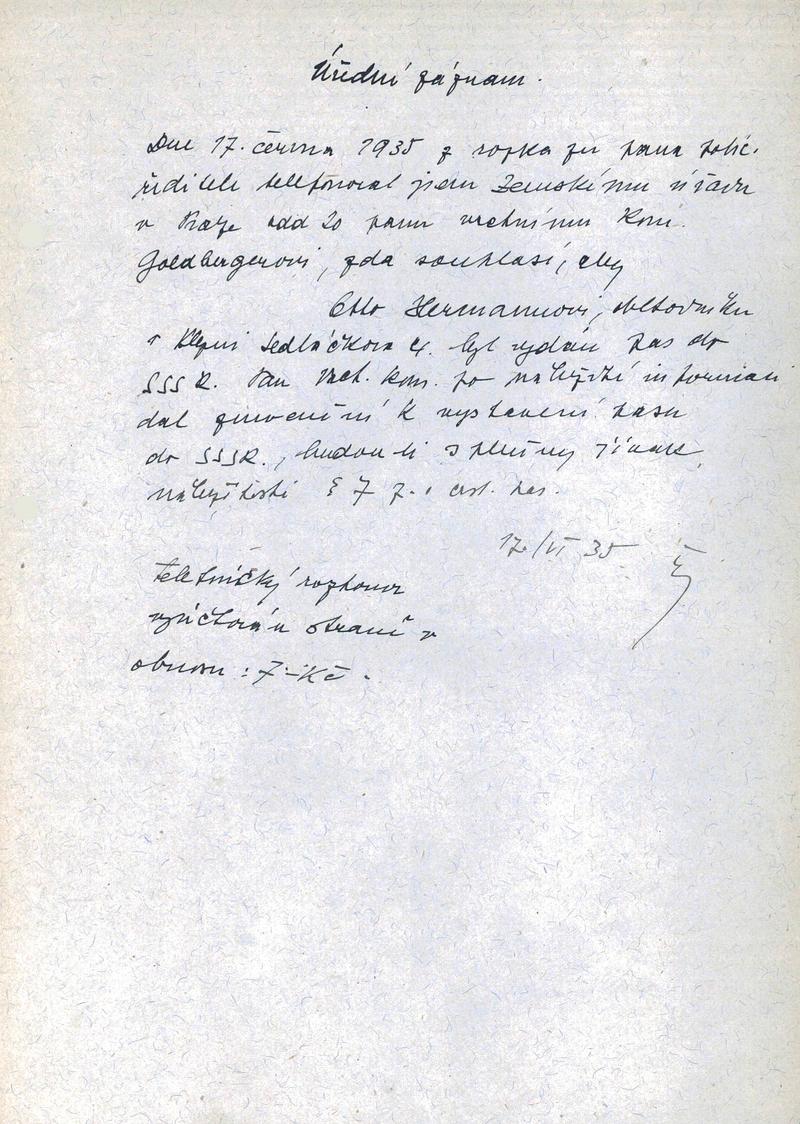 Úřední záznam.
Dne 17. června 1935 z rozkazu pana polic.
ředitele telefonoval jsem Zemskému úřadu
v Praze odd 20 panu vrchnímu kom.
Goldbergerovi, zda souhlasí, aby
Otto Hermannovi, obchodníku
v Plzni Sedláčkova 4. byl vydán pas do
SSSR. Pan vrch. kom. po náležité informaci
dal zmocnění k vystavení pasu
do SSSR., budou-li splněny jinak
náležitosti § 7 z. o cest. pas.
17./VI 35
Telefonický rozhovor
vyúčtován straně v
obnosu: 7.-Kč.